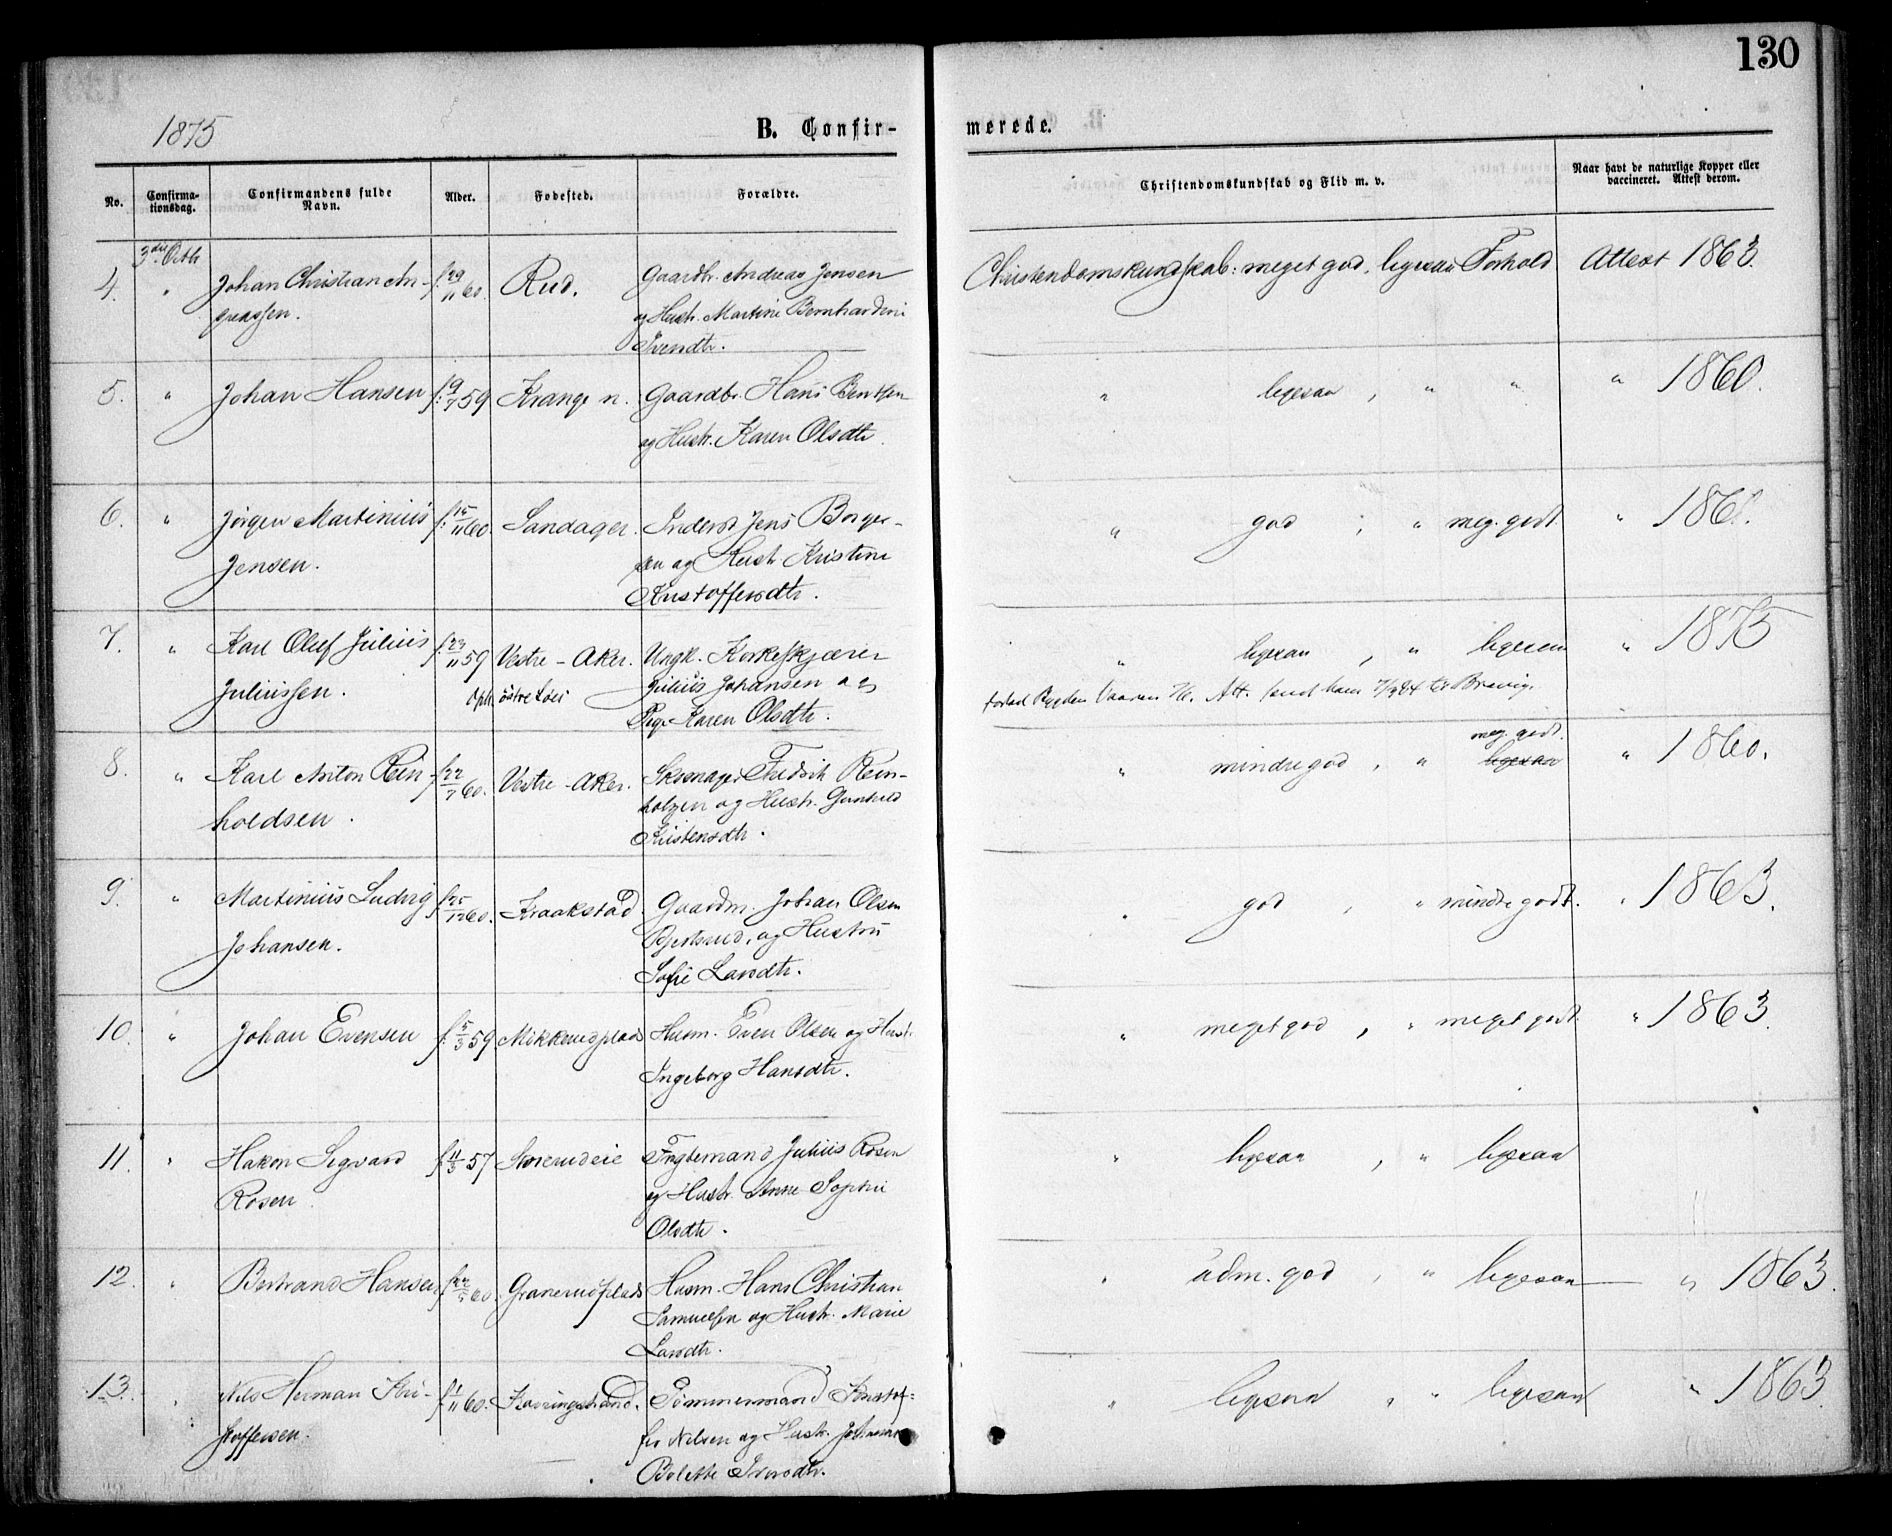 130
1875
B. Confir-
merede.
No.
Confirma-
tionsdag.
Confirmandens fulde
Navn.
Alder.
Fødested.
Forældre.
Christendomskundskab og Flid m. v.
Naar havt de naturlige Kopper eller
vaccineret. Attest derom.
3die Octb
4. " Johan Christian An- f. 29/11 60. Rud. Gaardbr. Andreas Jensen Christendomskundskab: meget god, ligesaa Forhold Attest 1863.
dreassen. og Hustr. Martine Bernhardine
5. " Johan Hansen f. 9/7 59 Krange n. Gaardbr. Hans Bentsen " ligesaa , " " " 1860.
og Hustr. Karen Olsdtr.
6. " Jørgen Martinius f. 15/11 60. Sandager. Inderst Jens Borger- " god , " meg. godt. " 1861.
Jensen. sen og Hustr. Kristine
Kristoffersdtr.
7. " Karl Oluf Julius f. 23/11 59 Vestre-Aker. Ungk. Korkeskjærer " ligesaa , " ligesaa " 1875
Juliussen. Oph. østre Julius Johansen og
Pige Karen Olsdtr. Att. sendt ham til Brevig.
meg. godt.
8. " Karl Anton Rein- f. 22/7 60. Vestre-Aker. Skomager Fredrik Rein- " mindre god , " ligesaa " 1860.
holdsen. og Hustr. Gunhild
Kristensdtr.
9. " Martinius Ludvig f. 25/12 60. Kraakstad Gaardm. Johan Olsen " god , " mindre godt. " 1863.
Johansen. og Hustru
Sofie Larsdtr.
10. " Johan Evensen f. 5/3 59. Mikkerudplads Husm. Even Olsen og Hustr. " meget god , " meget godt " 1863.
Ingeborg Hansdtr.
11. " Hakon Sigvard f. 11/5 57 Storerudeie Fngtemand Julius Rosen " ligesaa , " ligesaa
Rosen og Hustr. Anne Sophie
Olsdtr.
12. " Bertrand Hansen 60. Granerudplads Husm. Hans Christian " udm. god , " ligesaa " 1863.
Samuelsen og Hustr. Marie
Larsdtr.
13. " Nils Herman Kri- f. 1/11 60. Tømmermand Kristof- " ligesaa , " ligesaa " 1863.
stoffersen. fer Nilsen og Hustr. Johanne
Bolette Iversdtr.